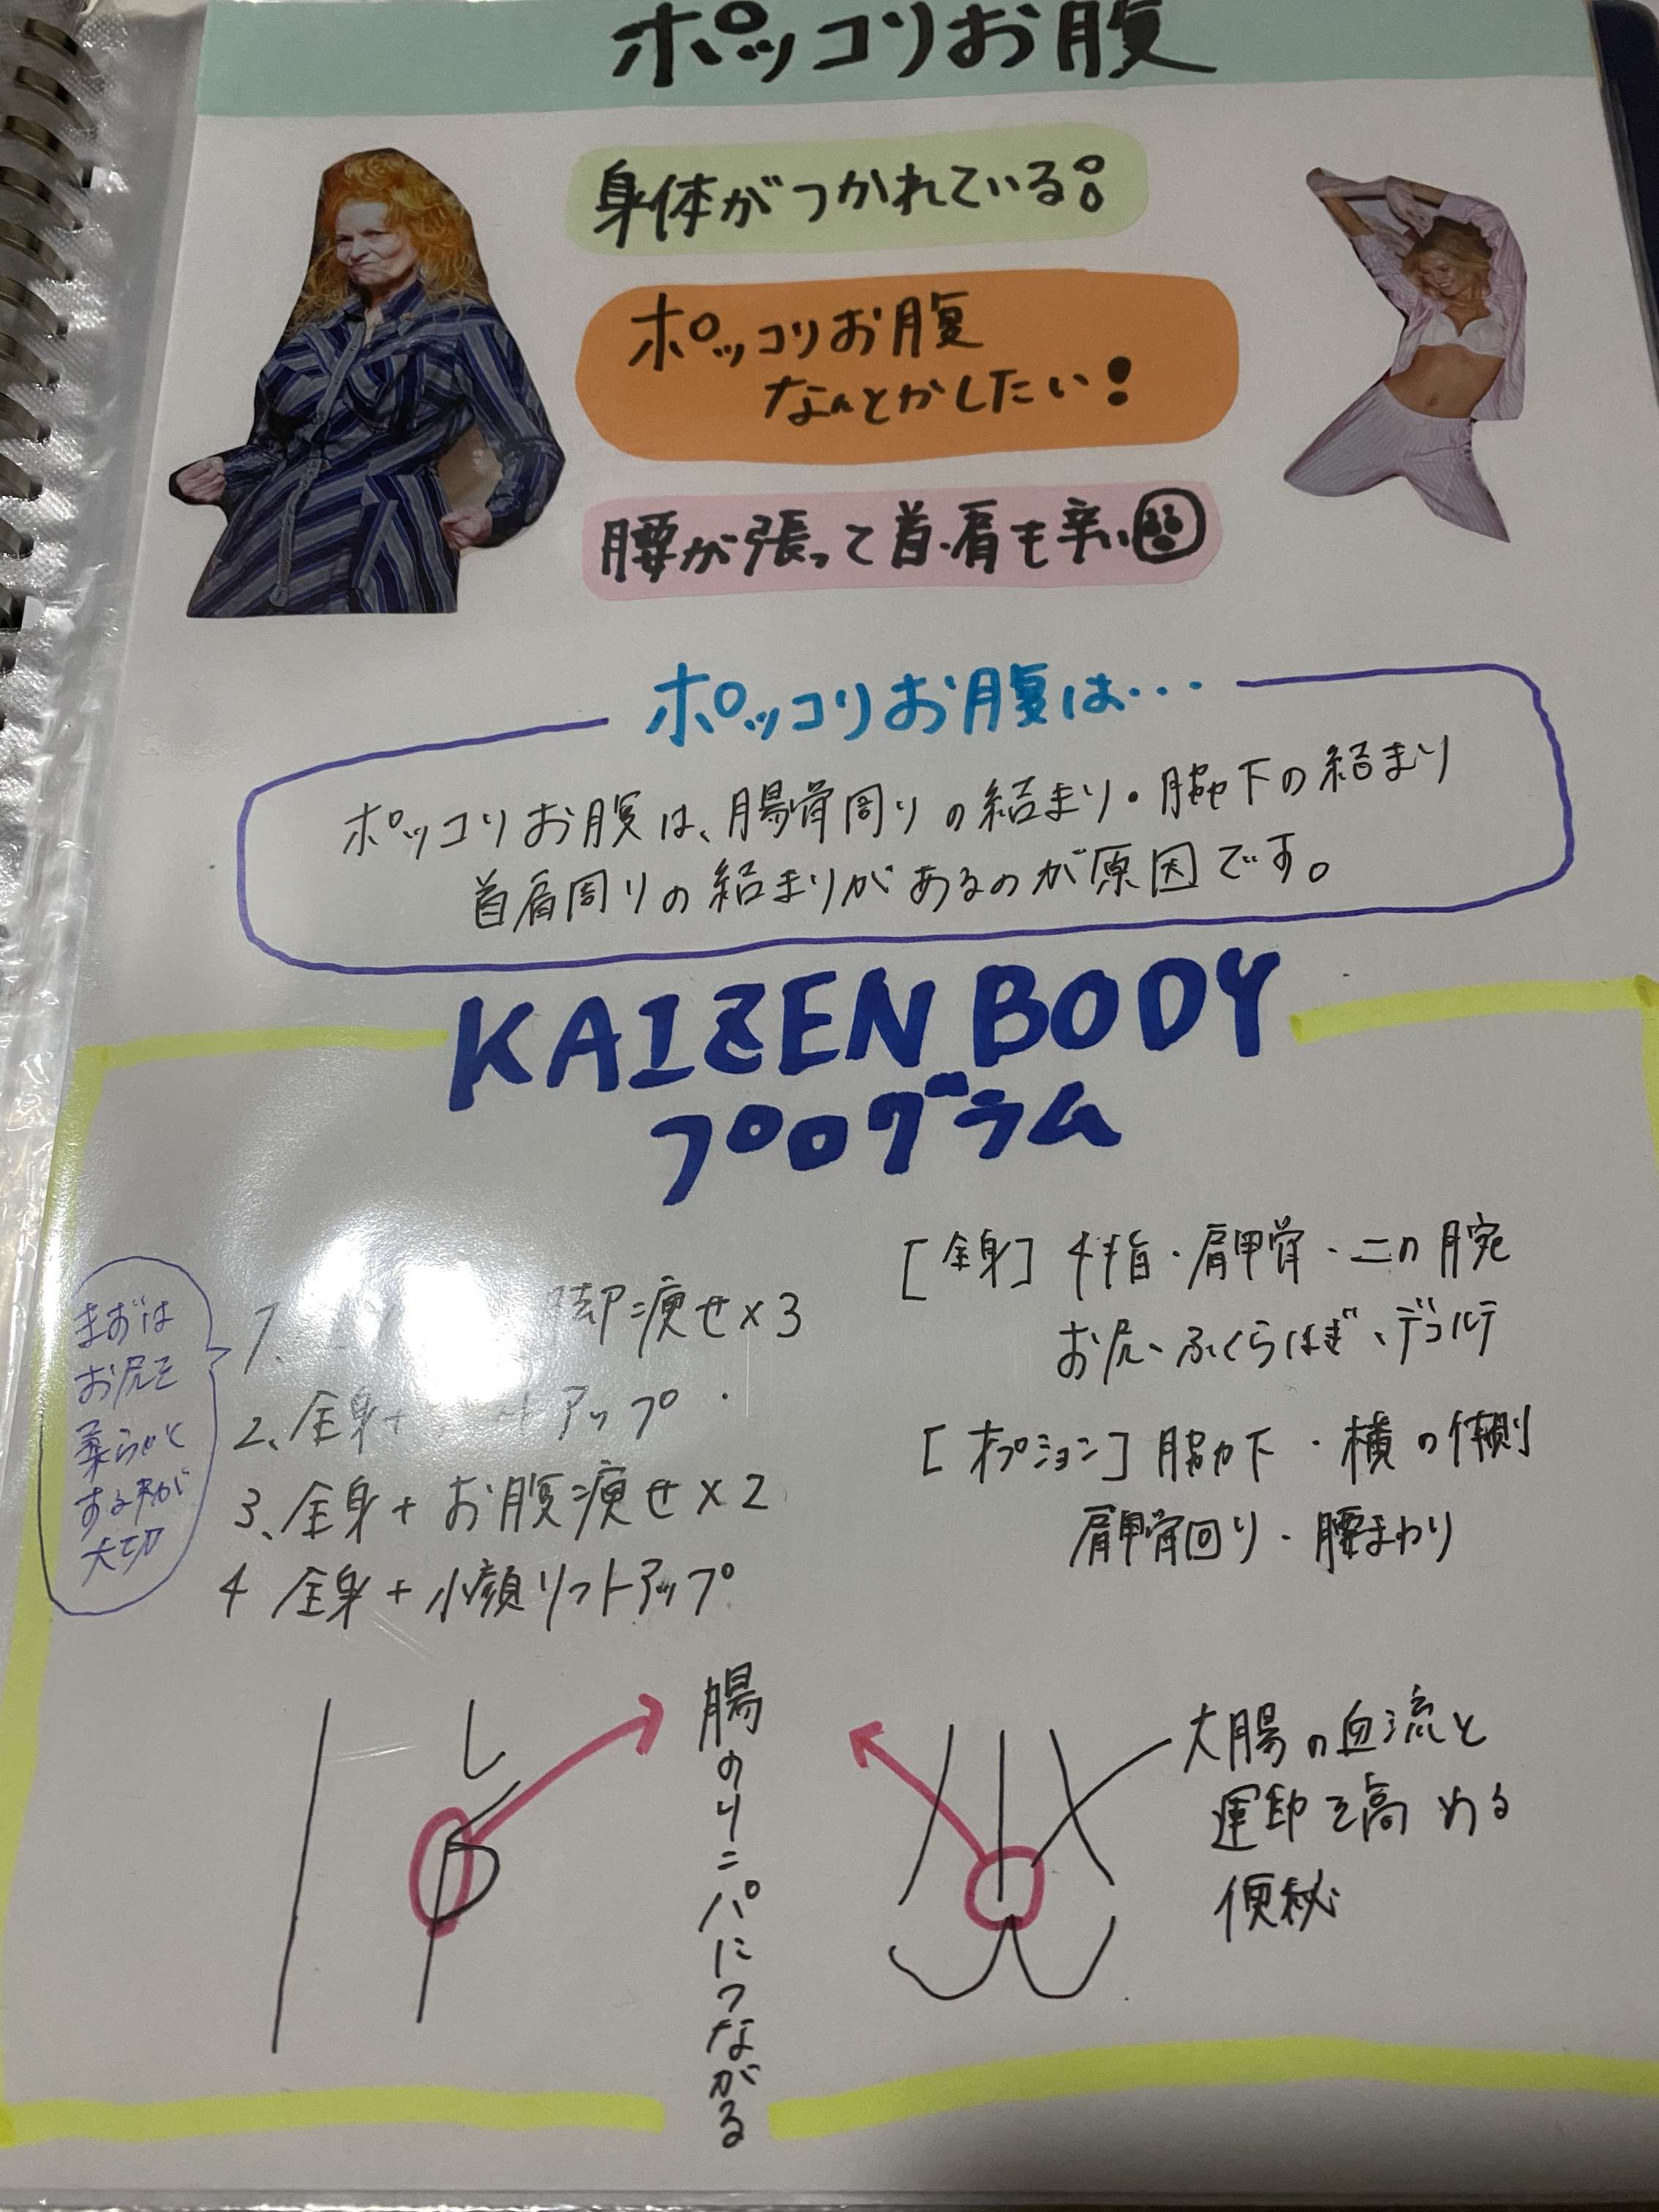 ポッコリお腹
身体がつかれている。
ポッコリお腹
なんとかしたい!
腰が張って首・肩も辛い
ポッコリお腹は…
ポッコリお腹は、腸骨周りの詰まり・腋下の詰まり
首肩周りの詰まりがあるのが原因です。
KAIZEN BODY
プログラム
まずは
お尻を
柔らかく
する事が
大切
1、 脚痩せ×3
2、全身+ トアップ
3、全身+お腹痩せ×2
4 全身+小顔リフトアップ
[全身] 4指・肩甲骨・二の腕
お尻、ふくらはぎ、デコルテ
[オプション] 脇下・横の体側
肩甲骨回り・腰まわり
腸のリンパにつながる
大腸の血流と
運動を高める
便秘